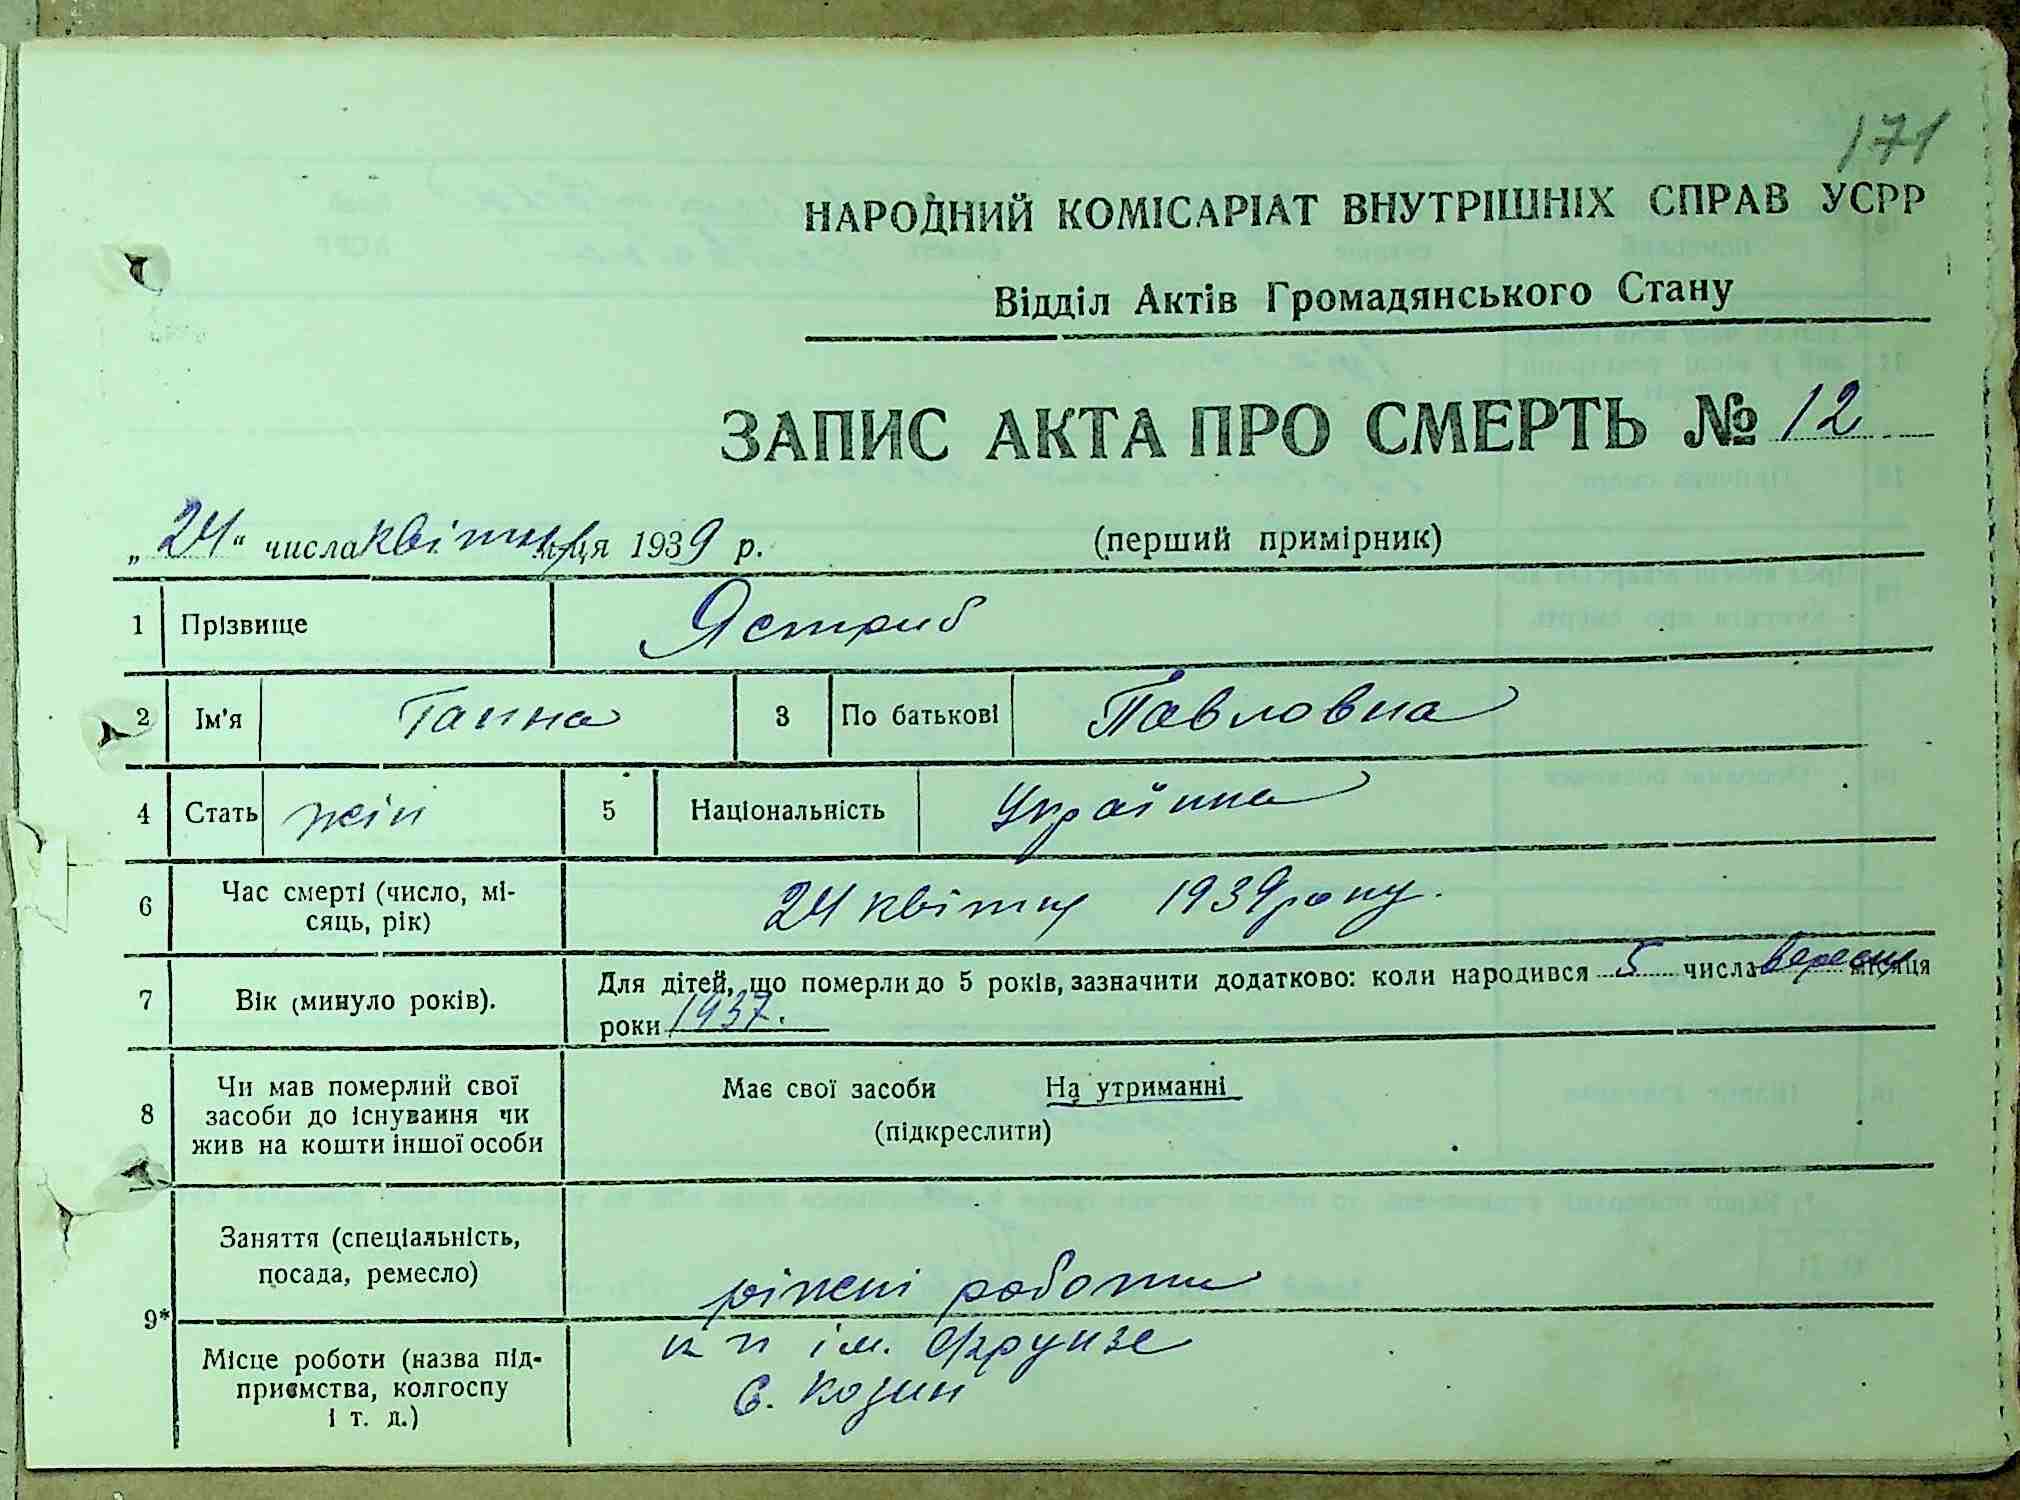 171
НАРОДНИЙ КОМІСАРІАТ ВНУТРІШНІХ СПРАВ УСРР
Відділ Актів Громадянського Стану
ЗАПИС АКТА ПРО СМЕРТЬ № 12
„24“ числа квітня м-ця 1939 р. (перший примірник)
1 Прізвище Ястриб
2 Ім'я Ганна 3 По батькові Павловна
4 Стать жін 5 Національність Українка
6 Час смерті (число, мі-
сяць, рік) 24 квітня 1939 року.
7 Вік (минуло років). Для дітей, що померли до 5 років, зазначити додатково: коли народився 5 числа вересня місяця
роки 1937.
8 Чи мав померлий свої
засоби до існування чи
жив на кошти іншої особи
Має свої засоби На утриманні
(підкреслити)
9* Заняття (спеціальність,
посада, ремесло) ріжні роботи
Місце роботи (назва під-
приємства, колгоспу
і т. д.)
к п ім. Фрунзе
с. Козин